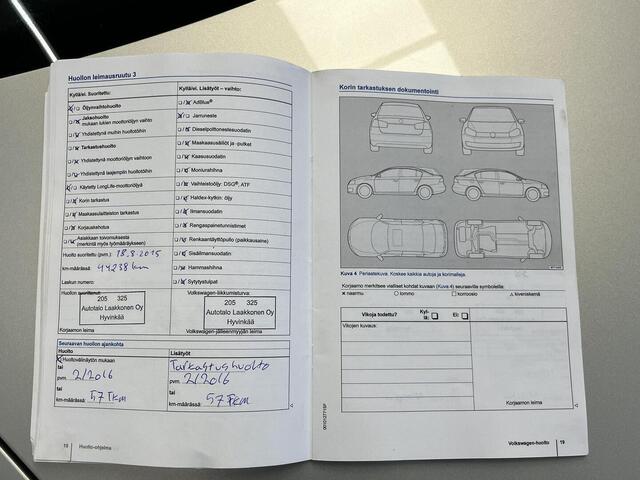 Huollon leimausruutu 3
Kyllä/ei. Suoritettu:
Öljynvaihtohuolto
Jaksohuolto
mukaan lukien moottoriöljyn vaihto
Yhdistettynä muihin huoltotöihin
Tarkastushuolto
Yhdistettynä moottoriöljyn vaihtoon
Yhdistettynä laajempiin huoltotöihin
Käytetty LongLife-moottoriöljyä
Korin tarkastus
Maakaasulaitteiston tarkastus
Korjauskehotus
Asiakkaan toivomuksesta
(merkintä myös työmääräykseen)
Huolto suoritettu (pvm.): 18.8.2015
km-määrässä: 44238 km
Laskun numero:
Huollon suorittanut:
205 325
Autotalo Laakkonen Oy
Hyvinkää
Korjaamon leima
Kyllä/ei. Lisätyöt – vaihto:
AdBlue®
Jarruneste
Dieselpolttonestesuodatin
Maakaasusäiliöt ja -putket
Kaasusuodatin
Moniurahihna
Vaihteistoöljy: DSG®, ATF
Haldex-kytkin: öljy
Ilmansuodatin
Rengaspainetunnistimet
Renkaantäyttöpullo (paikkausaine)
Sisäilmansuodatin
Hammashihna
Sytytystulpat
Volkswagen-liikkumisturva:
205 325
Autotalo Laakkonen Oy
Hyvinkää
Volkswagen-jälleenmyyjän leima
Seuraavan huollon ajankohta
Huolto
Huoltovälinäytön mukaan
tai
pvm. 2/2016
tai
km-määrässä: 57 Tkm
Lisätyöt
Tarkastushuolto
pvm. 2/2016
tai
km-määrässä: 57 Tkm
18 Huolto-ohjelma
Korin tarkastuksen dokumentointi
Kuva 4 Periaatekuva. Koskee kaikkia autoja ja korimalleja.
Korjaamo merkitsee vialliset kohdat kuvaan (Kuva 4) seuraaville symboleille:
× naarmu ○ lommo □ korroosio △ kiveniskemä
Vikoja todettu? Kyl-
lä: Ei:
Vikojen kuvaus:
Korjaamon leima
Volkswagen-huolto 19